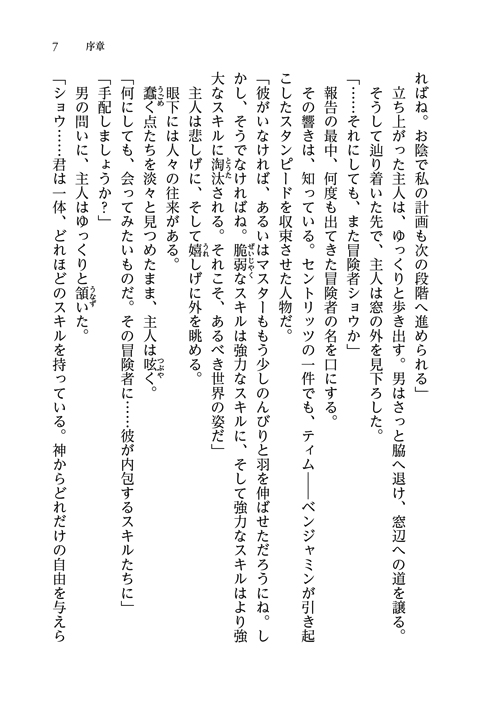 7　序章
ればね。お陰で私の計画も次の段階へ進められる」
　立ち上がった主人は、ゆっくりと歩き出す。男はさっと脇へ退け、窓辺への道を譲る。
　そうして辿り着いた先で、主人は窓の外を見下ろした。
「……それにしても、また冒険者ショウか」
　報告の最中、何度も出てきた冒険者の名を口にする。
　その響きは、知っている。セントリッツの一件でも、ティム――ベンジャミンが引き起
こしたスタンピードを収束させた人物だ。
「彼がいなければ、あるいはマスターももう少しのんびりと羽を伸ばせただろうにね。し
かし、そうでなければね。脆弱なスキルは強力なスキルに、そして強力なスキルはより強
大なスキルに淘汰される。それこそ、あるべき世界の姿だ」
　主人は悲しげに、そして嬉しげに外を眺める。
　眼下には人々の往来がある。
　蠢く点たちを淡々と見つめたまま、主人は呟く。
「何にしても、会ってみたいものだ。その冒険者に……彼が内包するスキルたちに」
「手配しましょうか？」
　男の問いに、主人はゆっくりと頷いた。
「ショウ……君は一体、どれほどのスキルを持っている。神からどれだけの自由を与えら